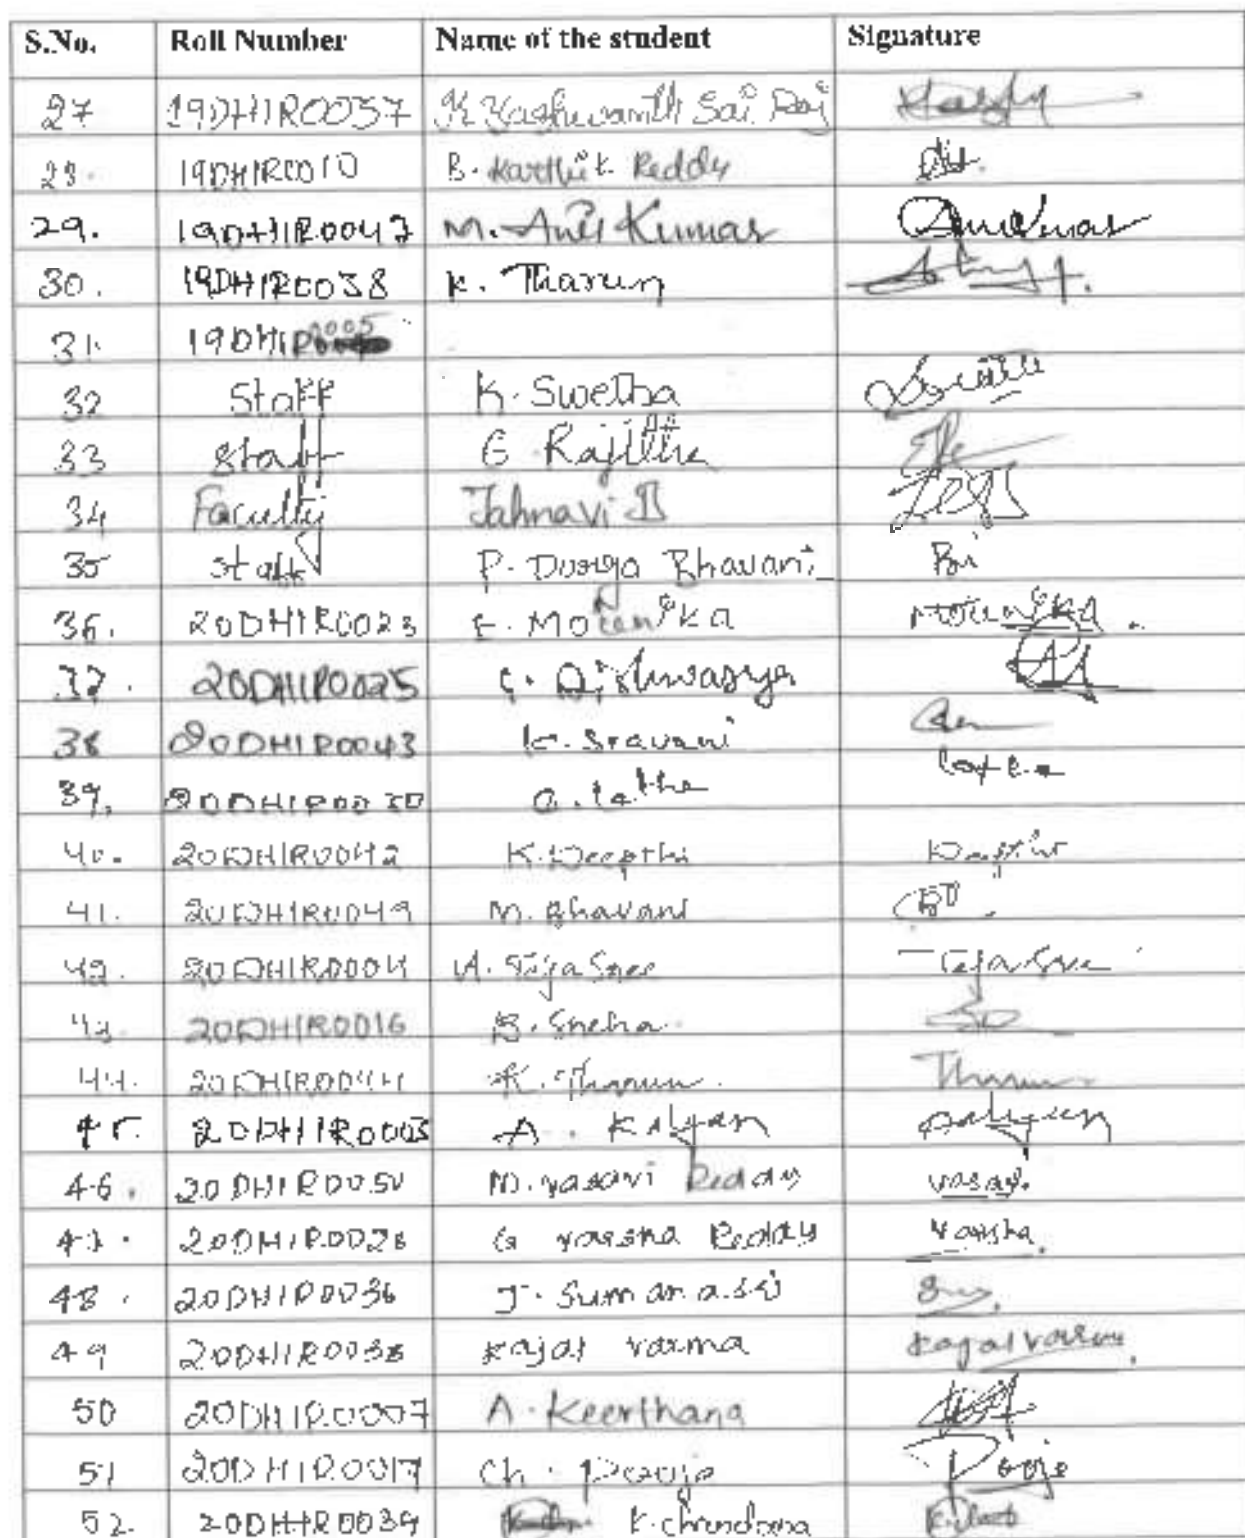 S.No. Roll Number Name of the student Signature
27 19DH1R0037 K Yashwanth Sai Raj
28. 19DH1R0010 B. Karthik Reddy
29. 19DH1R0047 M. Anil Kumar Anilkumar
30. 19DH1R0038 K. Tharun
31. 19DH1R0005
32 Staff K. Swetha Swetha
33 Staff G Rajitha
34 Faculty Jahnavi B
35 Staff P. Durga Bhavani
36. 20DH1R0023 E. Mounika Mounika.
37. 20DH1R0025
38 20DH1R0043 K. Sravani
39. 20DH1R0030 G. Latha Latha
40. 20DH1R0042 K. Deepthi Deepthi
41. 20DH1R0049 M. Bhavani
42. 20DH1R0004 A. Teja Sree Teja Sree
43. 20DH1R0016 B. Sneha
44. 20DH1R0044 K. Tharun. Tharun
45. 20DH1R0003 A. Kalyan Kalyan
46. 20DH1R0050 M. Vasavi Reddy Vasavi.
47. 20DH1R0028 G Varsha Reddy Varsha.
48. 20DH1R0036 J. Sumanasri
49 20DH1R0038 Kajal Varma Kajal Varma
50 20DH1R0007 A. Keerthana
51 20DH1R0017 Ch. Pooja Pooja
52. 20DH1R0039 K. Chandana